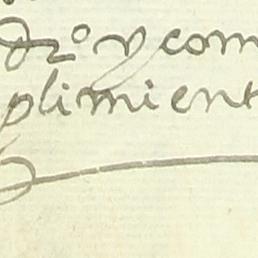 dro y com
plimient